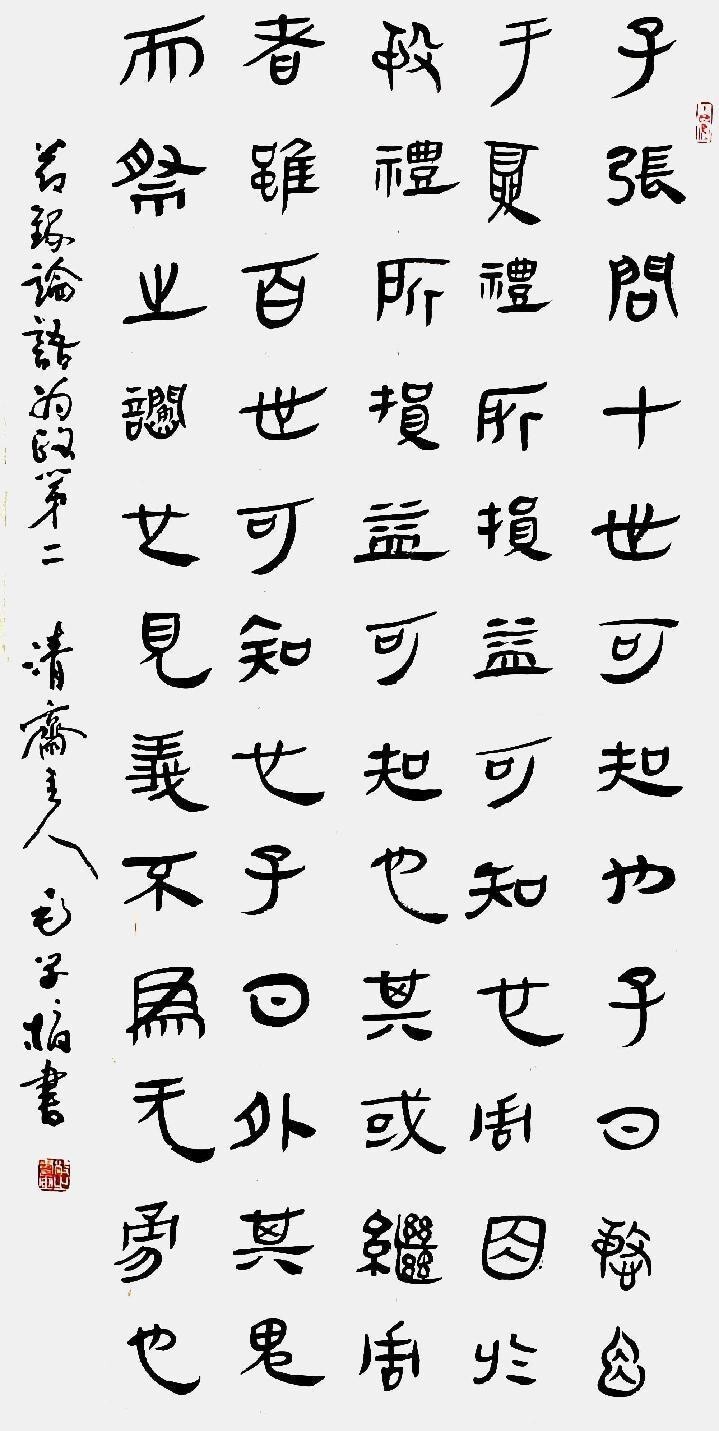 子張問十世可知也子曰殷因
于夏禮所損益可知也周因於
殷禮所損益可知也其或繼周
者雖百世可知也子曰外其鬼
而祭之讇也見義不為无勇也
節錄論語為政第二 清齋主人 毛学書